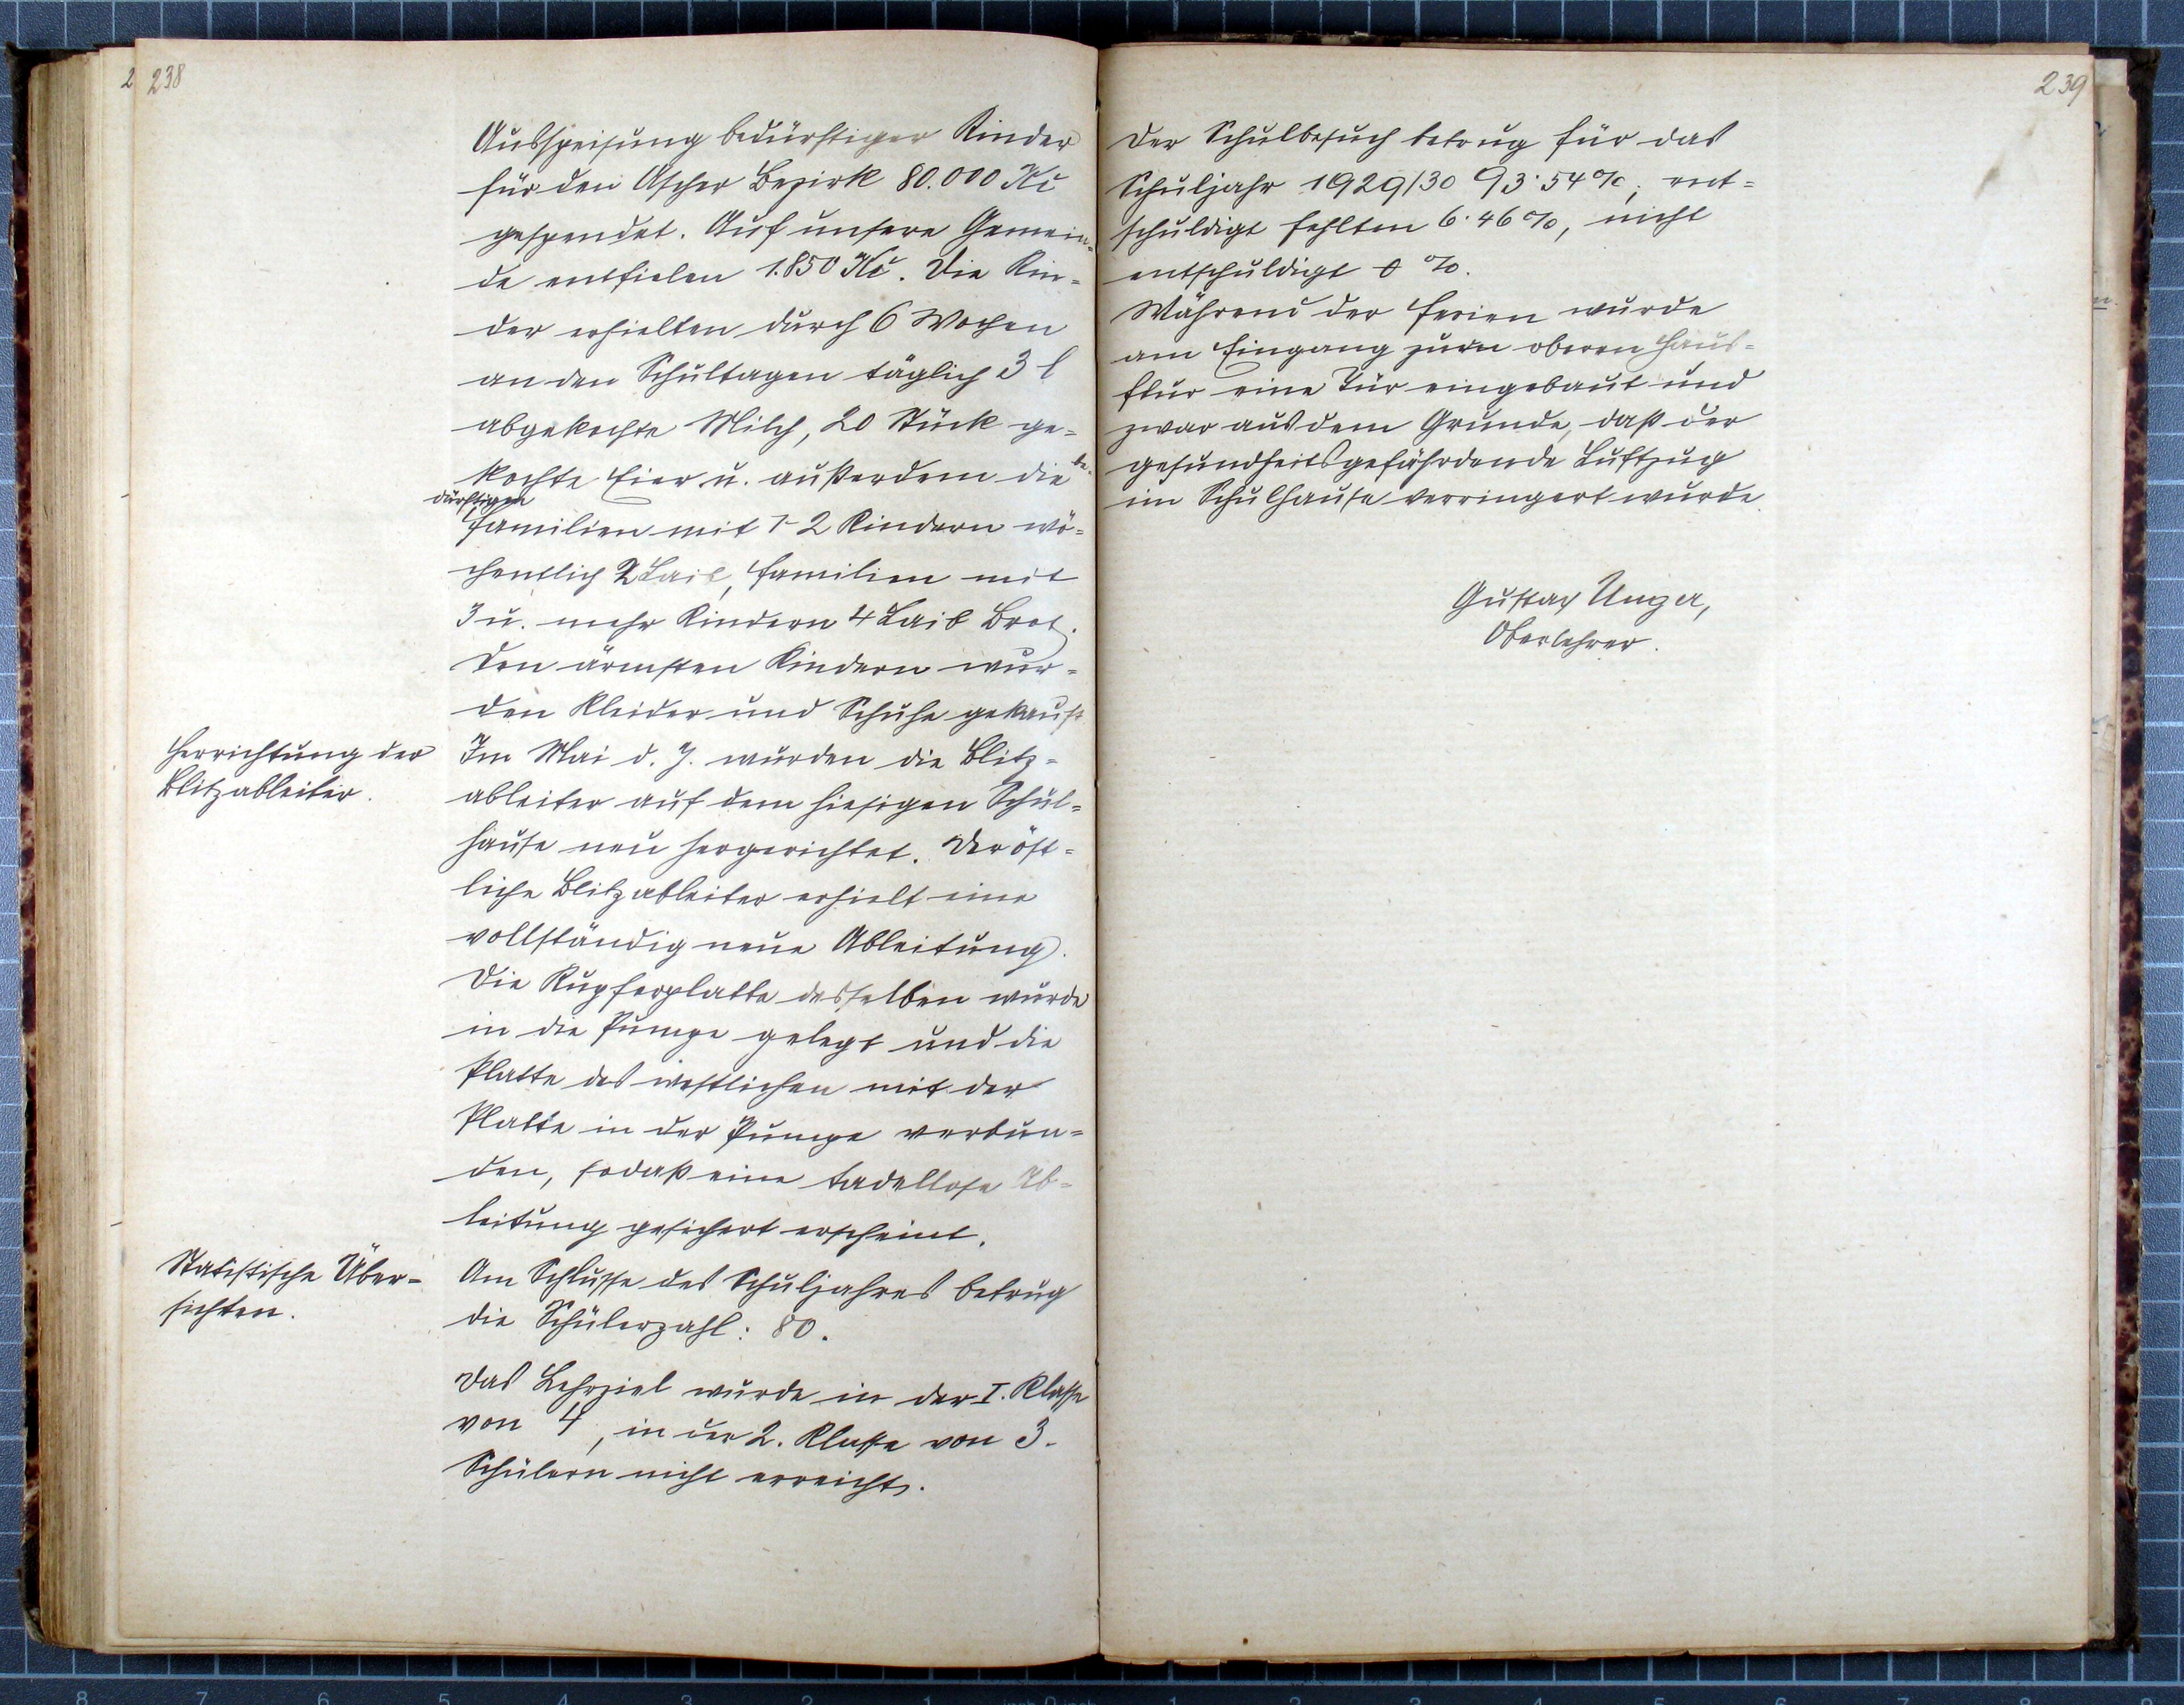 238
Ausspeisung bedürftiger Kinder
für den Ascher Bezirk 80.000 Kč
gespendet. Auf unsere Gemein-
de entfielen 1.850 Kč. Die Kin-
der erhielten durch 6 Wochen
an den Schultagen täglich 3 l
abgekochte Milch, 20 Stück ge-
kochte Eier u. außerdem die be-
dürftigen
Familien mit 1-2 Kindern wö-
chentlich 2 Laib, Familien mit
3 u. mehr Kindern 4 Laib Brot.
Den ärmsten Kindern wur-
den Kleider und Schuhe gekauft
Herrichtung der
Blitzableiter.
Im Mai d. J. wurden die Blitz-
ableiter auf dem hiesigen Schul-
hause neu hergerichtet. Der öst-
liche Blitzableiter erhielt eine
vollständig neue Ableitung.
Die Kupferplatte desselben wurde
in die Pumpe gelegt und die
Platte des westlichen mit der
Platte in der Pumpe verbun-
den, sodaß eine tadellose Ab-
leitung gesichert erscheint.
Statistische Über-
sichten.
Am Schlusse des Schuljahres betrug
die Schülerzahl: 80.
Das Lehrziel wurde in der I. Klasse
von 4, in der 2. Klasse von 3
Schülern nicht erreicht.
239
Der Schulbesuch betrug für das
Schuljahr 1929/30 93·54%; ent-
schuldigt fehlten 6·46%, nicht
entschuldigt 0 %.
Während der Ferien wurde
am Eingang zum oberen Haus-
flur eine Tür eingebaut und
zwar aus dem Grunde, daß der
gesundheitsgefährdende Luftzug
im Schulhause verringert wurde.
Gustav Unger,
Oberlehrer.